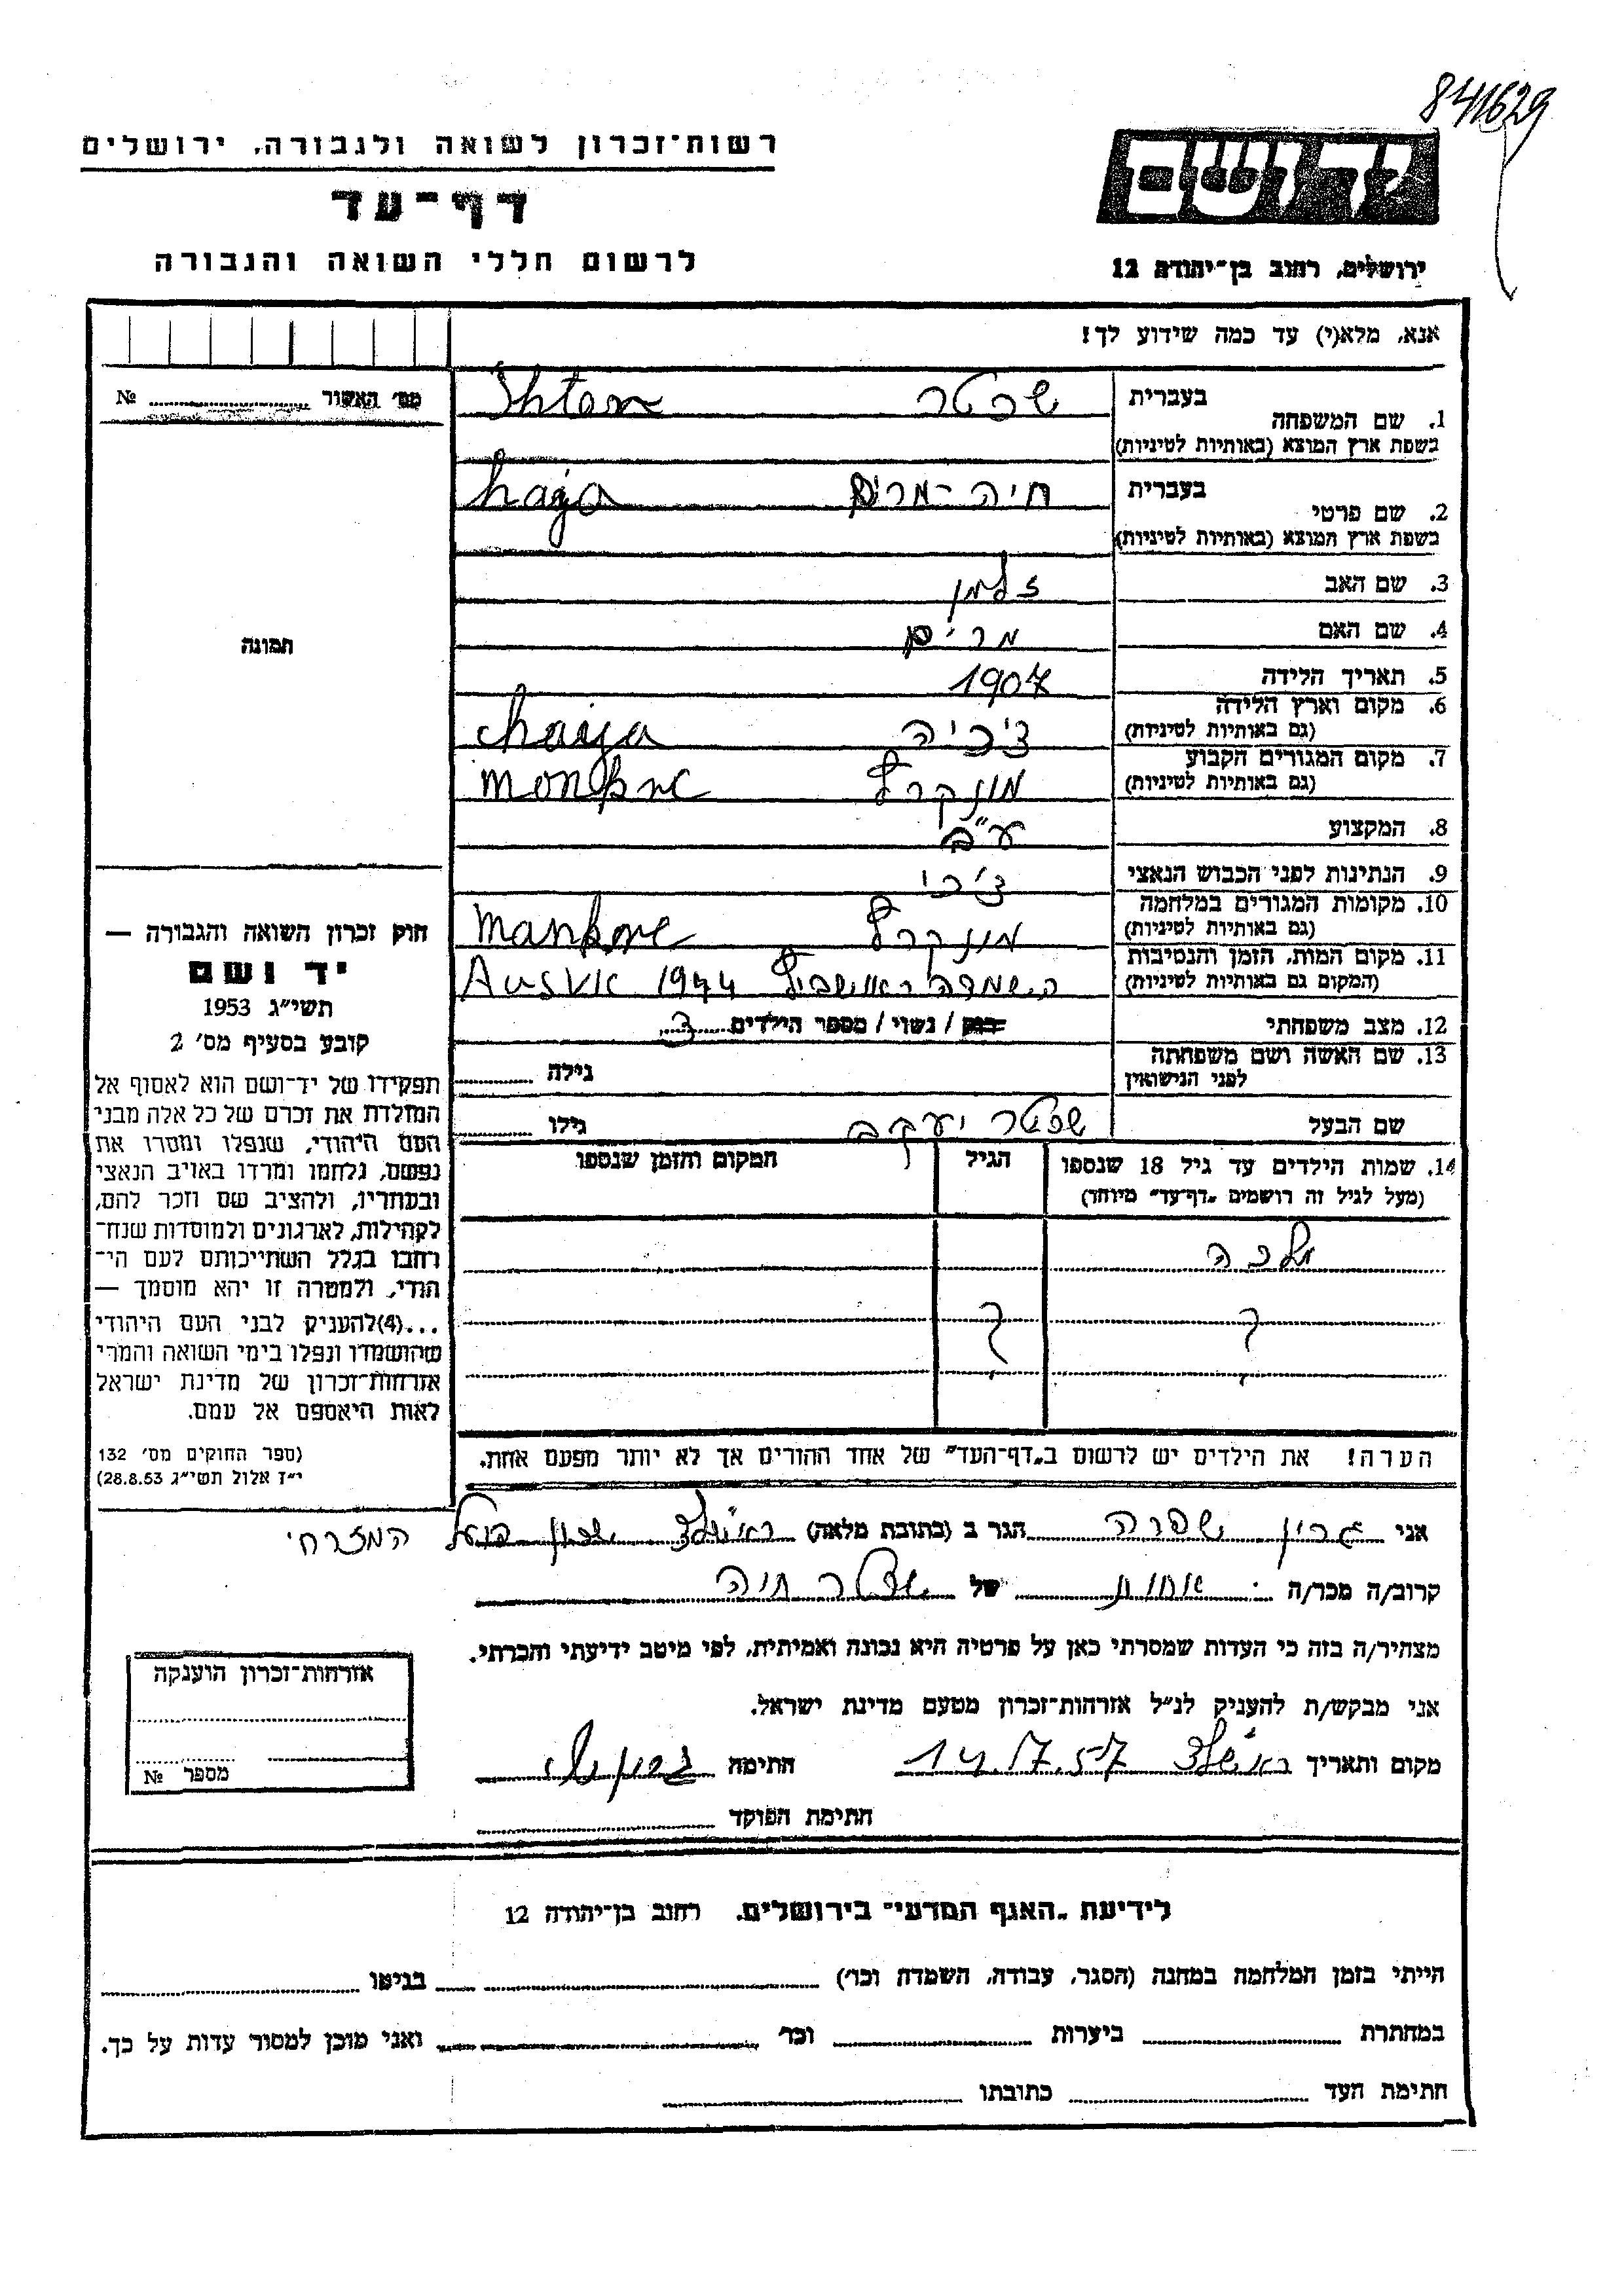 841629
רשות־זכרון לשואה ולגבורה, ירושלים
יד ושם
דף־עד
לרשום חללי השואה והגבורה
ירושלים, רחוב בן־יהודה 12
אנא, מלא(י) עד כמה שידוע לך!
מס׳ האשור № 
1. שם המשפחה בעברית
בשפת ארץ המוצא (באותיות לטיניות)
2. שם פרטי בעברית חיה-מרים haja
בשפת ארץ המוצא (באותיות לטיניות)
3. שם האב זלמן
4. שם האם מרים
5. תאריך הלידה 1907
6. מקום וארץ הלידה צ'כיה
(גם באותיות לטיניות)
7. מקום המגורים הקבוע
(גם באותיות לטיניות)
8. המקצוע ע"ב
9. הנתינות לפני הכבוש הנאצי צ'כי
10. מקומות המגורים במלחמה
(גם באותיות לטיניות)
11. מקום המות, הזמן והנסיבות 1944
(המקום גם באותיות לטיניות)
12. מצב משפחתי רווק / נשוי / מספר הילדים 3
13. שם האשה ושם משפחתה
לפני הנישואין גילה
שם הבעל יעקב גילו
14. שמות הילדים עד גיל 18 שנספו הגיל המקום והזמן שנספו
(מעל לגיל זה רושמים „דף־עד” מיוחד)
מלכה
?
?
הערה! את הילדים יש לרשום ב„דף־העד” של אחד ההורים אך לא יותר מפעם אחת.
תמונה
חוק זכרון השואה והגבורה —
יד ושם
תשי״ג 1953
קובע בסעיף מס׳ 2
תפקידו של יד־ושם הוא לאסוף אל
המולדת את זכרם של כל אלה מבני
העם היהודי, שנפלו ומסרו את
נפשם, נלחמו ומרדו באויב הנאצי
ובעוזריו, ולהציב שם וזכר להם,
לקהילות, לארגונים ולמוסדות שנח־
רבו בגלל השתייכותם לעם הי־
הודי, ולמטרה זו יהא מוסמך —
...(4)להעניק לבני העם היהודי
שהושמדו ונפלו בימי השואה והמרי
אזרחות־זכרון של מדינת ישראל
לאות היאספם אל עמם.
(ספר החוקים מס׳ 132
י״ז אלול תשי״ג 28.8.53)
אני שפרה הגר ב (כתובת מלאה) ראשל"צ שכון פועל המזרחי
קרוב/ה מכר/ה אחות של חיה
מצהיר/ה בזה כי העדות שמסרתי כאן על פרטיה היא נכונה ואמיתית, לפי מיטב ידיעתי והכרתי.
אני מבקש/ת להעניק לנ״ל אזרחות־זכרון מטעם מדינת ישראל.
מקום ותאריך ראשל"צ 14.7.57 חתימה
חתימת הפוקד
אזרחות־זכרון הוענקה
מספר №
לידיעת „האגף המדעי” בירושלים, רחוב בן־יהודה 12
הייתי בזמן המלחמה במחנה (הסגר, עבודה, השמדה וכו׳) בגיטו
במחתרת ביערות וכו׳ ואני מוכן למסור עדות על כך.
חתימת העד כתובתו